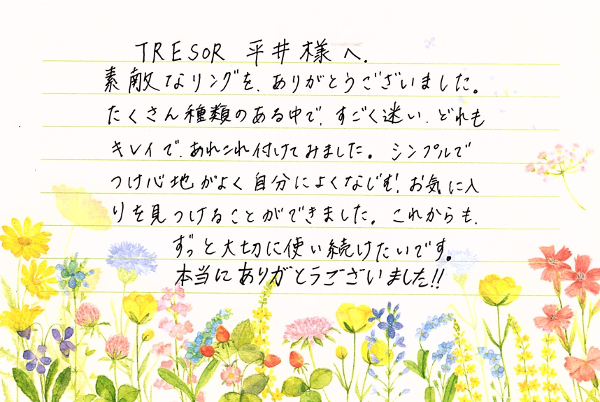 TRESOR 平井様へ.
素敵なリングを、ありがとうございました。
たくさん種類のある中で、すごく迷い、どれも
キレイで、あれこれ付けてみました。シンプルで
つけ心地がよく自分によくなじむ、お気に入
りを見つけることができました。これからも、
ずっと大切に使い続けたいです。
本当にありがとうございました!!